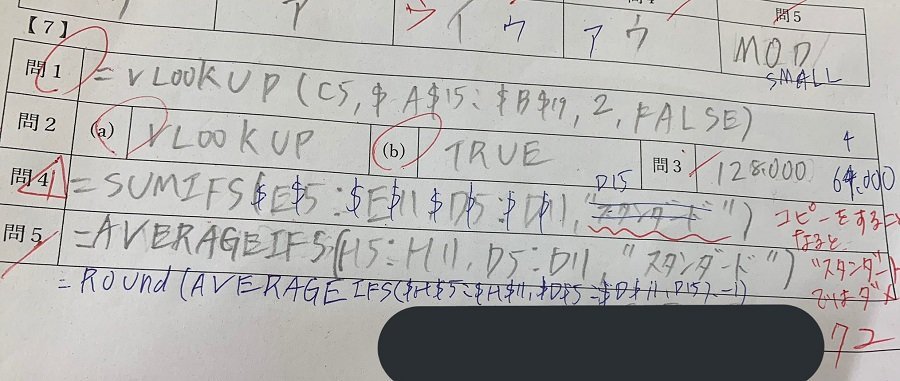 【7】
ア
ウ イ ウ
ア ウ
問5
MOD
SMALL
問1 =VLOOKUP(C5,$A$15:$B$19,2,FALSE)
問2 (a) VLOOKUP (b) TRUE 問3 128.000 64.000
問4 =SUMIFS($E$5:$E$11 $D$5:$D$11,"スタンダード") D15
コピーをすること
"スタンダード
ではダメ
問5 =AVERAGEIFS(H5:H11,D5:D11,"スタンダード")
=Round(AVERAGEIFS($H$5:$H$11,$D$5:$D$11,D15),-1)
72